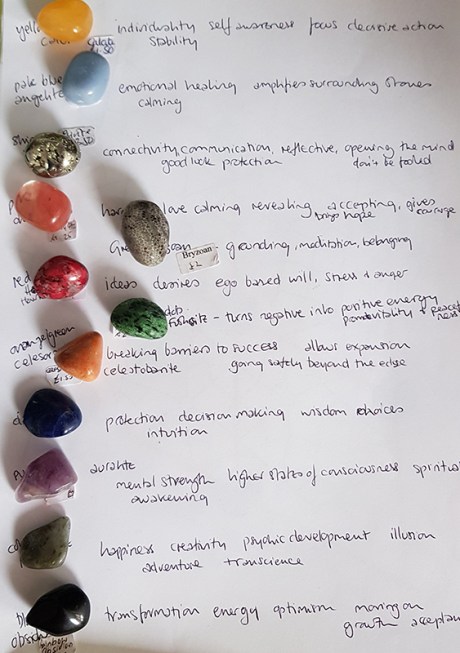 yello individuality self awareness focus decisive action
calc stability
£1.50
pale blue emotional healing amplifies surrounding stones
angelite calming
connectivity, communication, reflective, opening the mind
good luck protection don't be fooled
love calming revealing accepting, gives
brings hope courage
Bryzoan
£2
grounding, meditation, belonging
red ideas desires ego based will, stress & anger
fushsite - turns negative into positive energy
orange/green breaking barriers to success allows expansion
celestobarite going safely beyond the edge
protection decision making wisdom choices
intuition
auralite
mental strength higher states of consciousness spiritua
awakening
happiness creativity psychic development illusion
adventure transcience
transformation energy optimism moving on
obsid growth acceptan
rainbow
obsidian